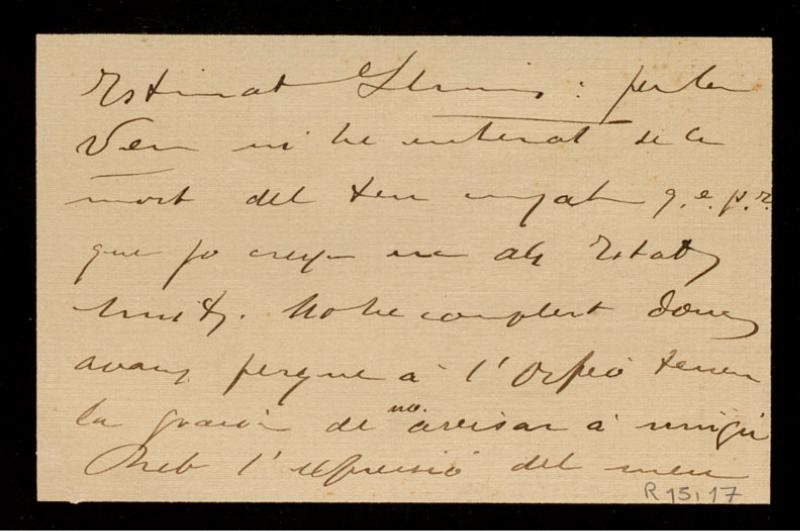 Estimat Lluis: per la
Veu m'he enterat de la
mort del teu cunyat q.e.p.r.
que jo creya era als Estats
Units. No he complert doncs
avans perque à l'Orfeó tenen
la gracia de no avisar à ningú
Reb l'expressió del meu
R 15,17